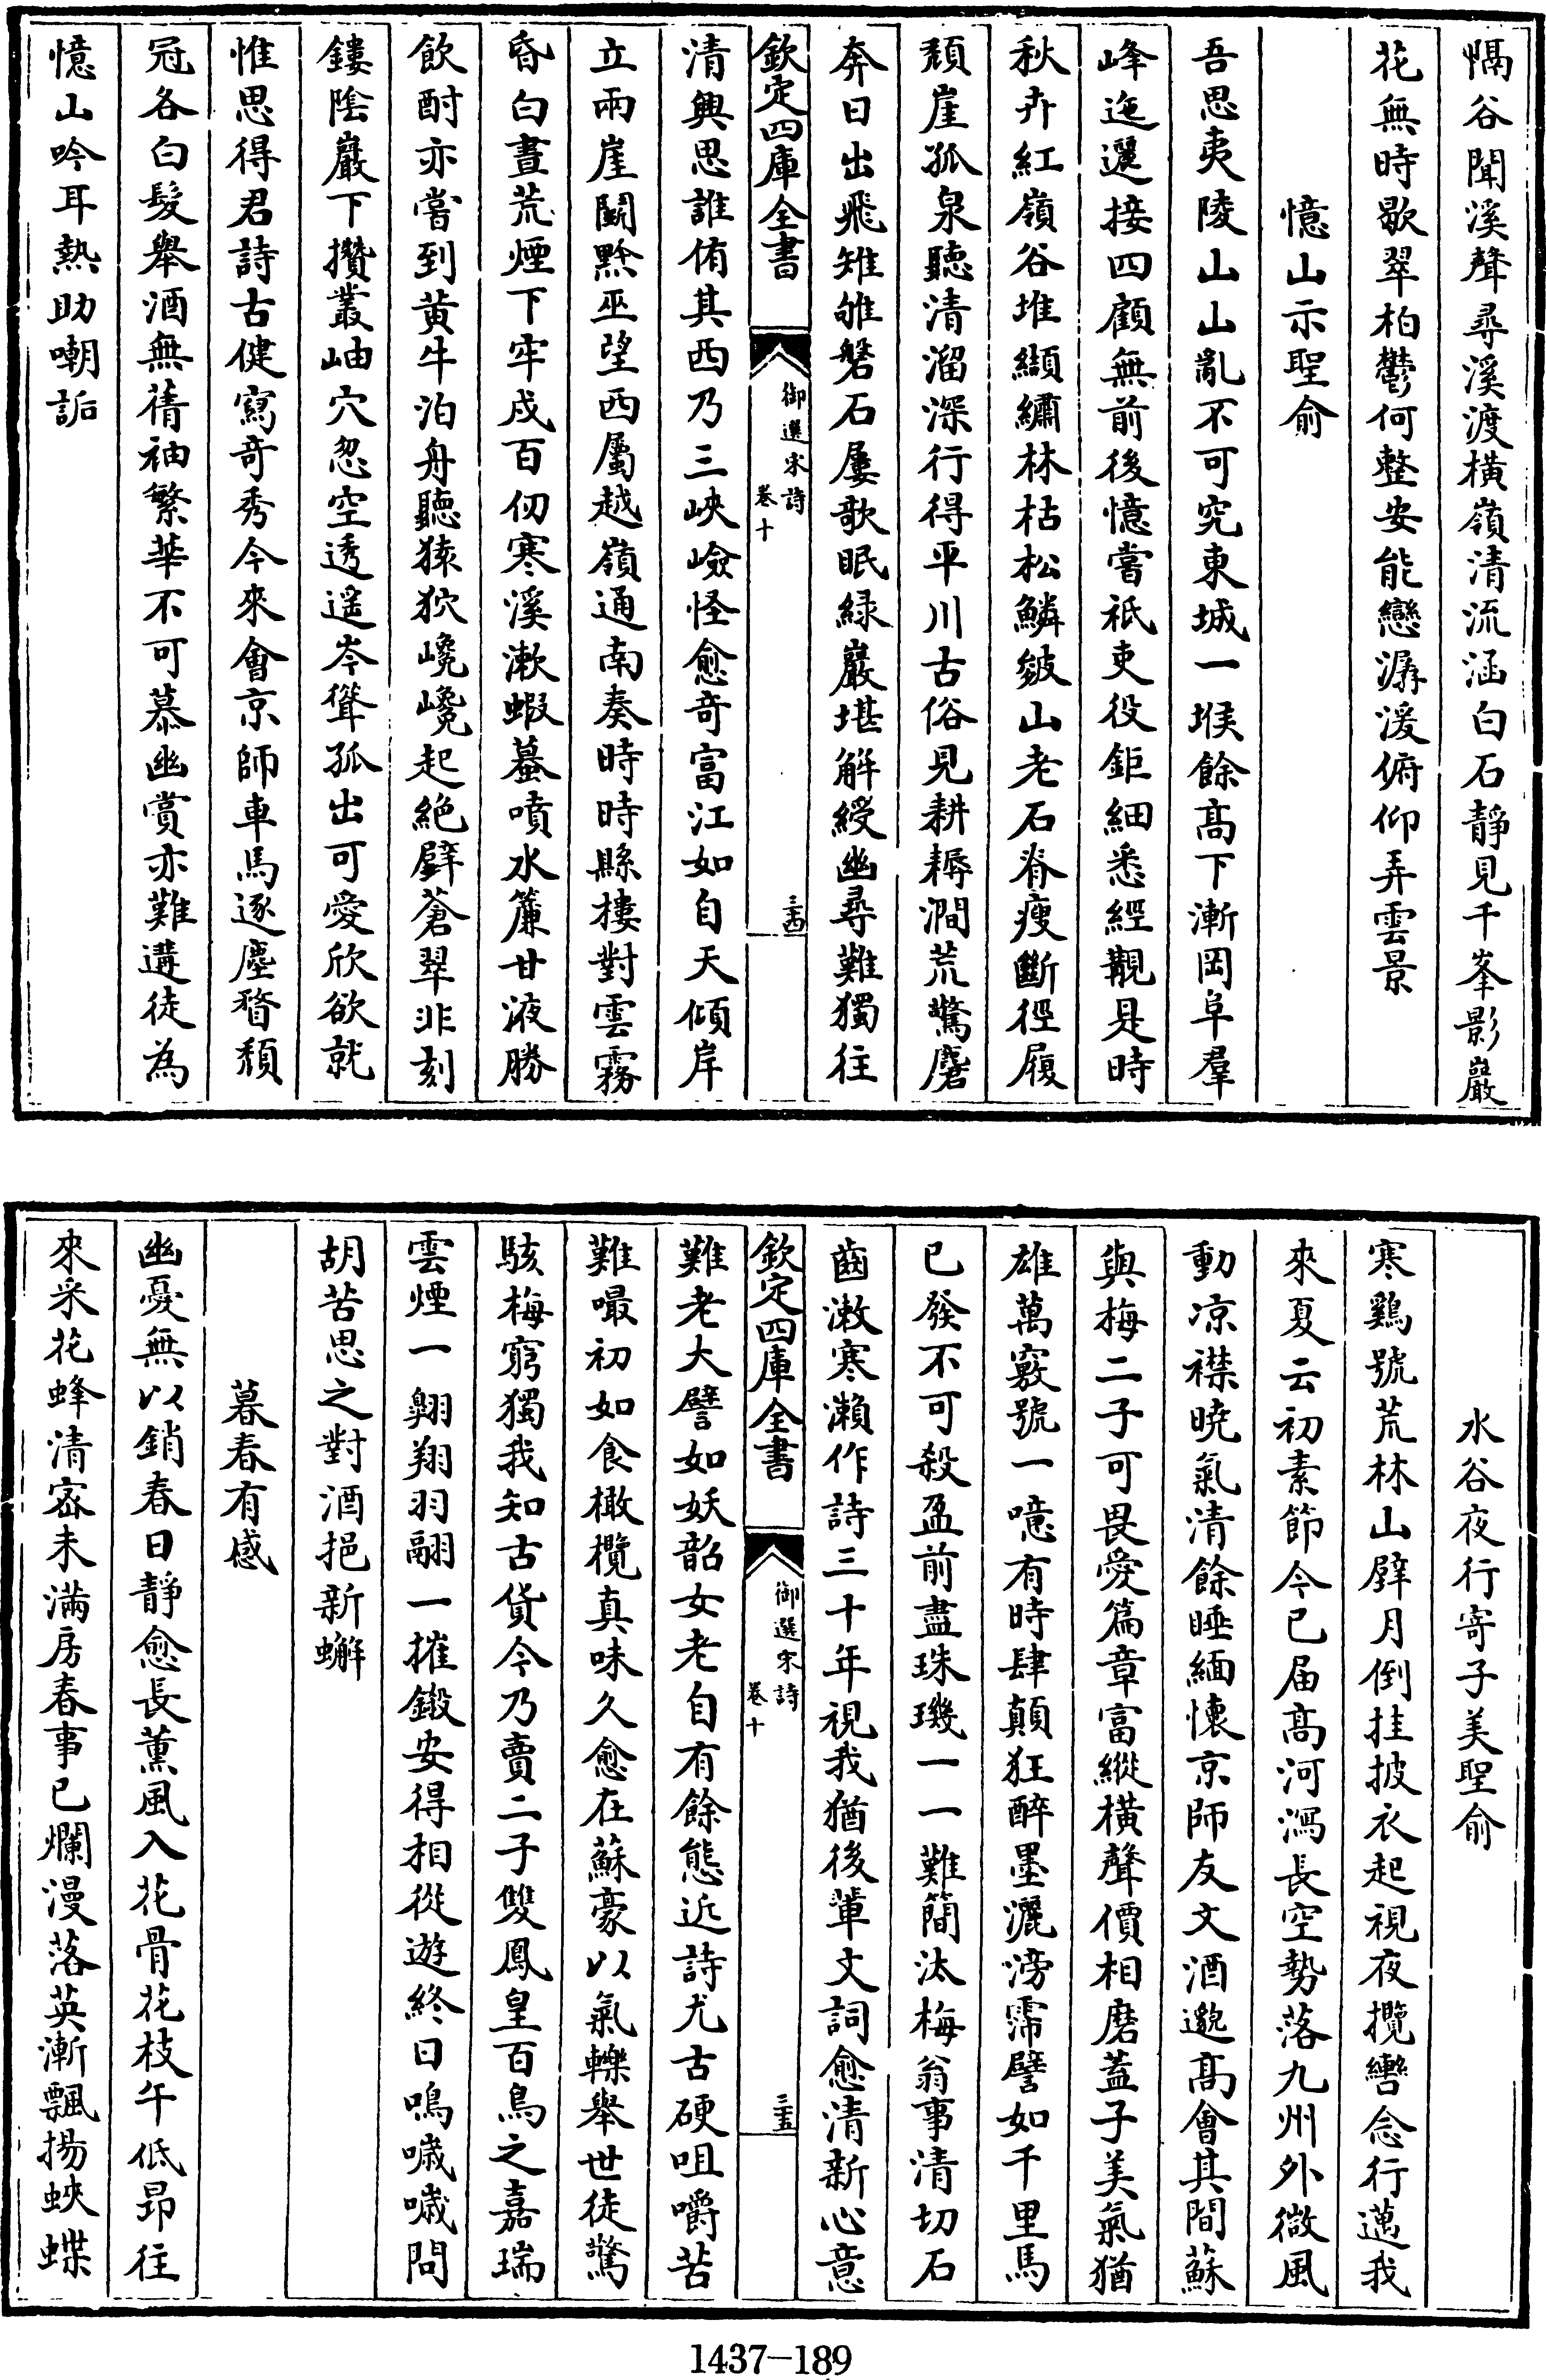 惆谷聞溪聲尋溪渡橫嶺清流涵白石靜見千峯影巖
花無時歇翠柏鬱何整安能戀潺湲俯仰弄雲景
憶山示聖俞
吾思夷陵山山亂不可究東城一堠餘髙下漸岡阜羣
峰迤邐接四顧無前後憶嘗祇吏役鉅細悉經覯是時
秋卉紅嶺谷堆纈繡林枯松鱗皴山老石脊瘦斷徑履
頹崖孤泉聽清溜深行得平川古俗見耕耨澗荒驚麏
奔日出飛雉雊磐石屢歌眠緑巖堪解綬幽尋難獨往
欽定四庫全書
御選宋詩
卷十
三四
清興思誰侑其西乃三峽嶮怪愈奇富江如自天傾岸
立兩崖鬭黔巫望西屬越嶺通南奏時時縣樓對雲霧
昏白晝荒煙下牢戍百仞寒溪漱蝦蟇噴水簾甘液勝
飲酎亦嘗到黄牛泊舟聽猿狖巉巉起絶壁蒼翠非刻
鏤陰巖下攢叢岫穴忽空透遥岑聳孤出可愛欣欲就
惟思得君詩古健寫奇秀今來會京師車馬逐塵瞀頹
冠各白髮舉酒無蒨袖繁華不可慕幽賞亦難遘徒為
憶山吟耳熱助嘲詬
水谷夜行寄子美聖俞
寒鷄號荒林山壁月倒挂披衣起視夜攬轡念行邁我
來夏云初素節今已届髙河瀉長空勢落九州外微風
動凉襟曉氣清餘睡緬懷京師友文酒邈髙會其間蘇
與梅二子可畏愛篇章富縱横聲價相磨蓋子美氣猶
雄萬竅號一噫有時肆顛狂醉墨灑滂霈譬如千里馬
已發不可殺盈前盡珠璣一一難簡汰梅翁事清切石
齒漱寒瀨作詩三十年視我猶後輩文詞愈清新心意
欽定四庫全書
御選宋詩
卷十
三五
難老大譬如妖韶女老自有餘態近詩尤古硬咀嚼苦
難嘬初如食橄欖真味久愈在蘇豪以氣轢舉世徒驚
駭梅窮獨我知古貨今乃賣二子雙鳳皇百鳥之嘉瑞
雲煙一翺翔羽翮一摧鎩安得相從遊終日鳴噦噦問
胡苦思之對酒挹新蠏
暮春有感
幽憂無以銷春日靜愈長薰風入花骨花枝午低昂往
來采花蜂清宻未滿房春事已爛漫落英漸飄揚蛺蝶
1437-189